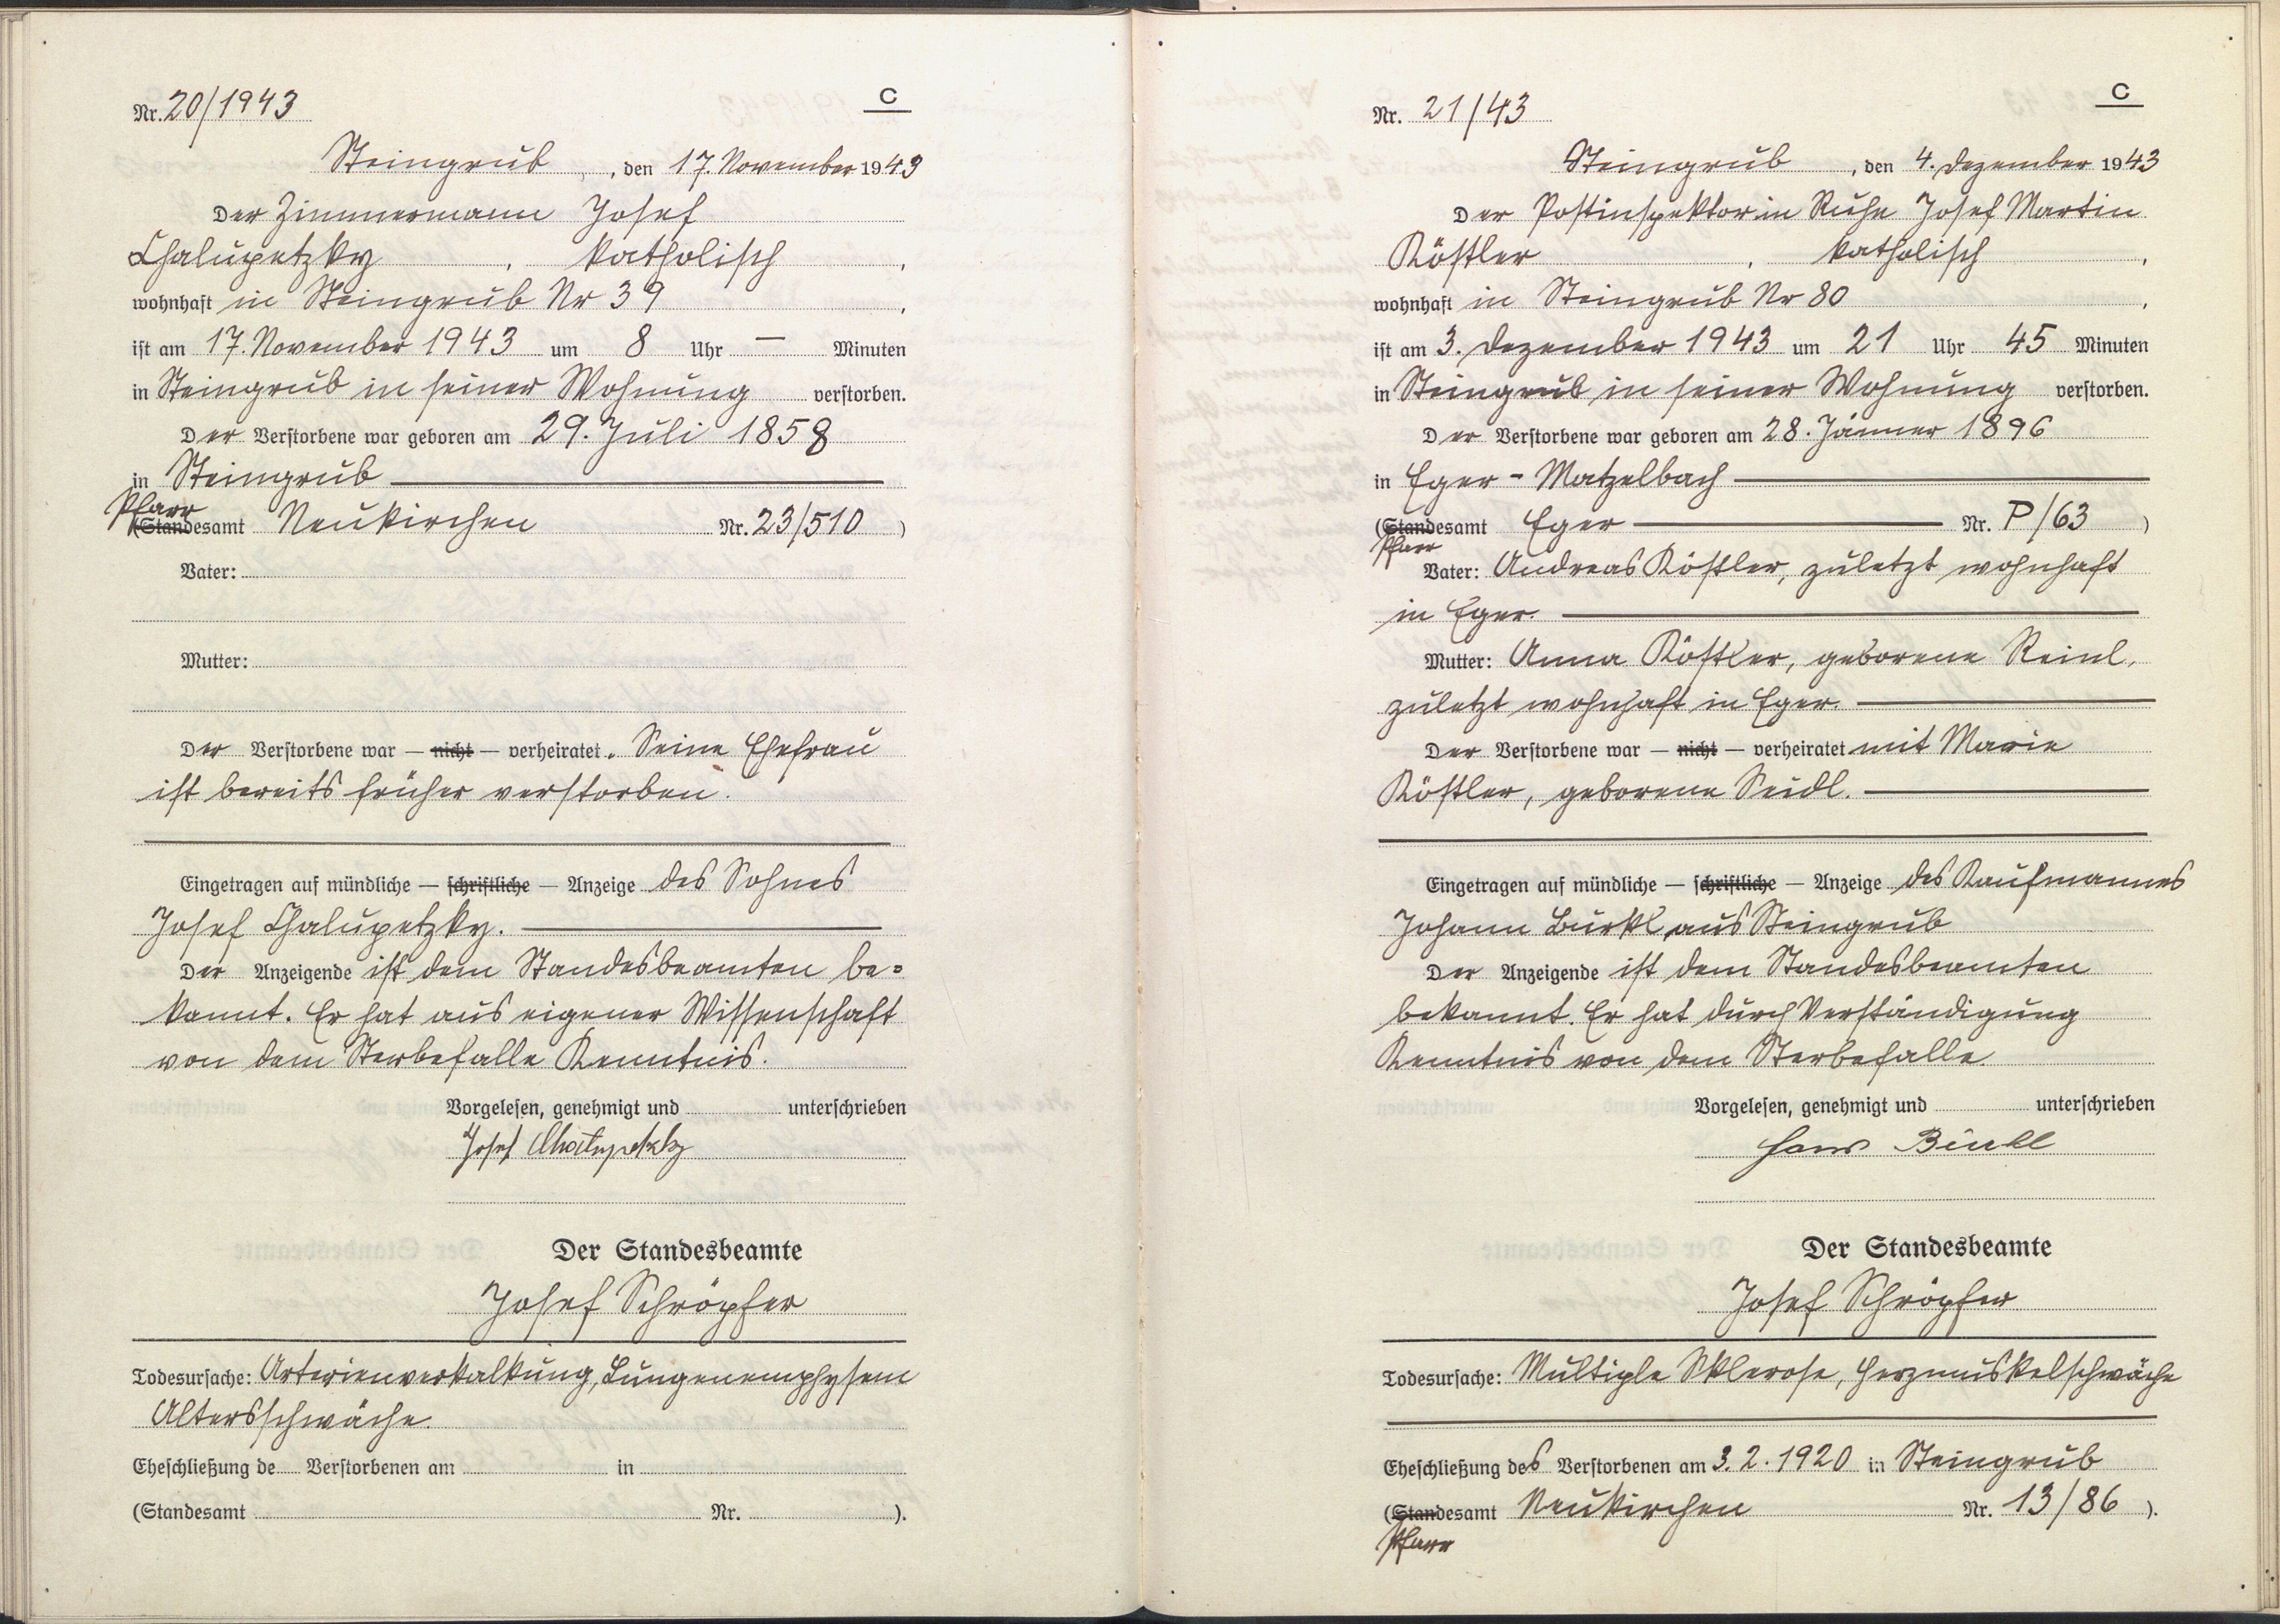 Nr. 20/1943
C
Steingrub, den 17. November 1943
Der Zimmermann Josef
Chalupetzky, katholisch,
wohnhaft in Steingrub Nr 39,
ist am 17. November 1943 um 8 Uhr — Minuten
in Steingrub in seiner Wohnung verstorben.
Der Verstorbene war geboren am 29. Juli 1858
in Steingrub
Pfarr
(Standesamt Neukirchen Nr. 23/510)
Vater:
Mutter:
Der Verstorbene war — nicht — verheiratet. Seine Ehefrau
ist bereits früher verstorben.
Eingetragen auf mündliche — schriftliche — Anzeige des Sohnes
Josef Chalupetzky.
Der Anzeigende ist dem Standesbeamten be=
kannt. Er hat aus eigener Wissenschaft
von dem Sterbefalle Kenntnis.
Vorgelesen, genehmigt und unterschrieben
Josef Chalupetzky
Der Standesbeamte
Josef Schröpfer
Todesursache: Arterienverkalkung, Lungenemphysem
Altersschwäche.
Eheschließung de Verstorbenen am in
(Standesamt Nr. ).
Nr. 21/43
C
Steingrub, den 4. Dezember 1943
Der Postinspektor in Ruhe Josef Martin
Köstler, katholisch,
wohnhaft in Steingrub Nr 80,
ist am 3. Dezember 1943 um 21 Uhr 45 Minuten
in Steingrub in seiner Wohnung verstorben.
Der Verstorbene war geboren am 28. Jänner 1896
in Eger - Matzelbach
(Standesamt Eger Nr. P/63)
Pfarr
Vater: Andreas Köstler, zuletzt wohnhaft
in Eger.
Mutter: Anna Köstler, geborene Reinl,
zuletzt wohnhaft in Eger.
Der Verstorbene war — nicht — verheiratet mit Marie
Köstler, geborene Seidl.
Eingetragen auf mündliche — schriftliche — Anzeige des Kaufmannes
Johann Bürkl, aus Steingrub
Der Anzeigende ist dem Standesbeamten
bekannt. Er hat durch Verständigung
Kenntnis von dem Sterbefalle.
Vorgelesen, genehmigt und unterschrieben
Hans
Der Standesbeamte
Josef Schröpfer
Todesursache: Multiple Sklerose, Herzmuskelschwäche
Eheschließung des Verstorbenen am 3. 2. 1920 in Steingrub
(Standesamt Neukirchen Nr. 13/86).
Pfarr